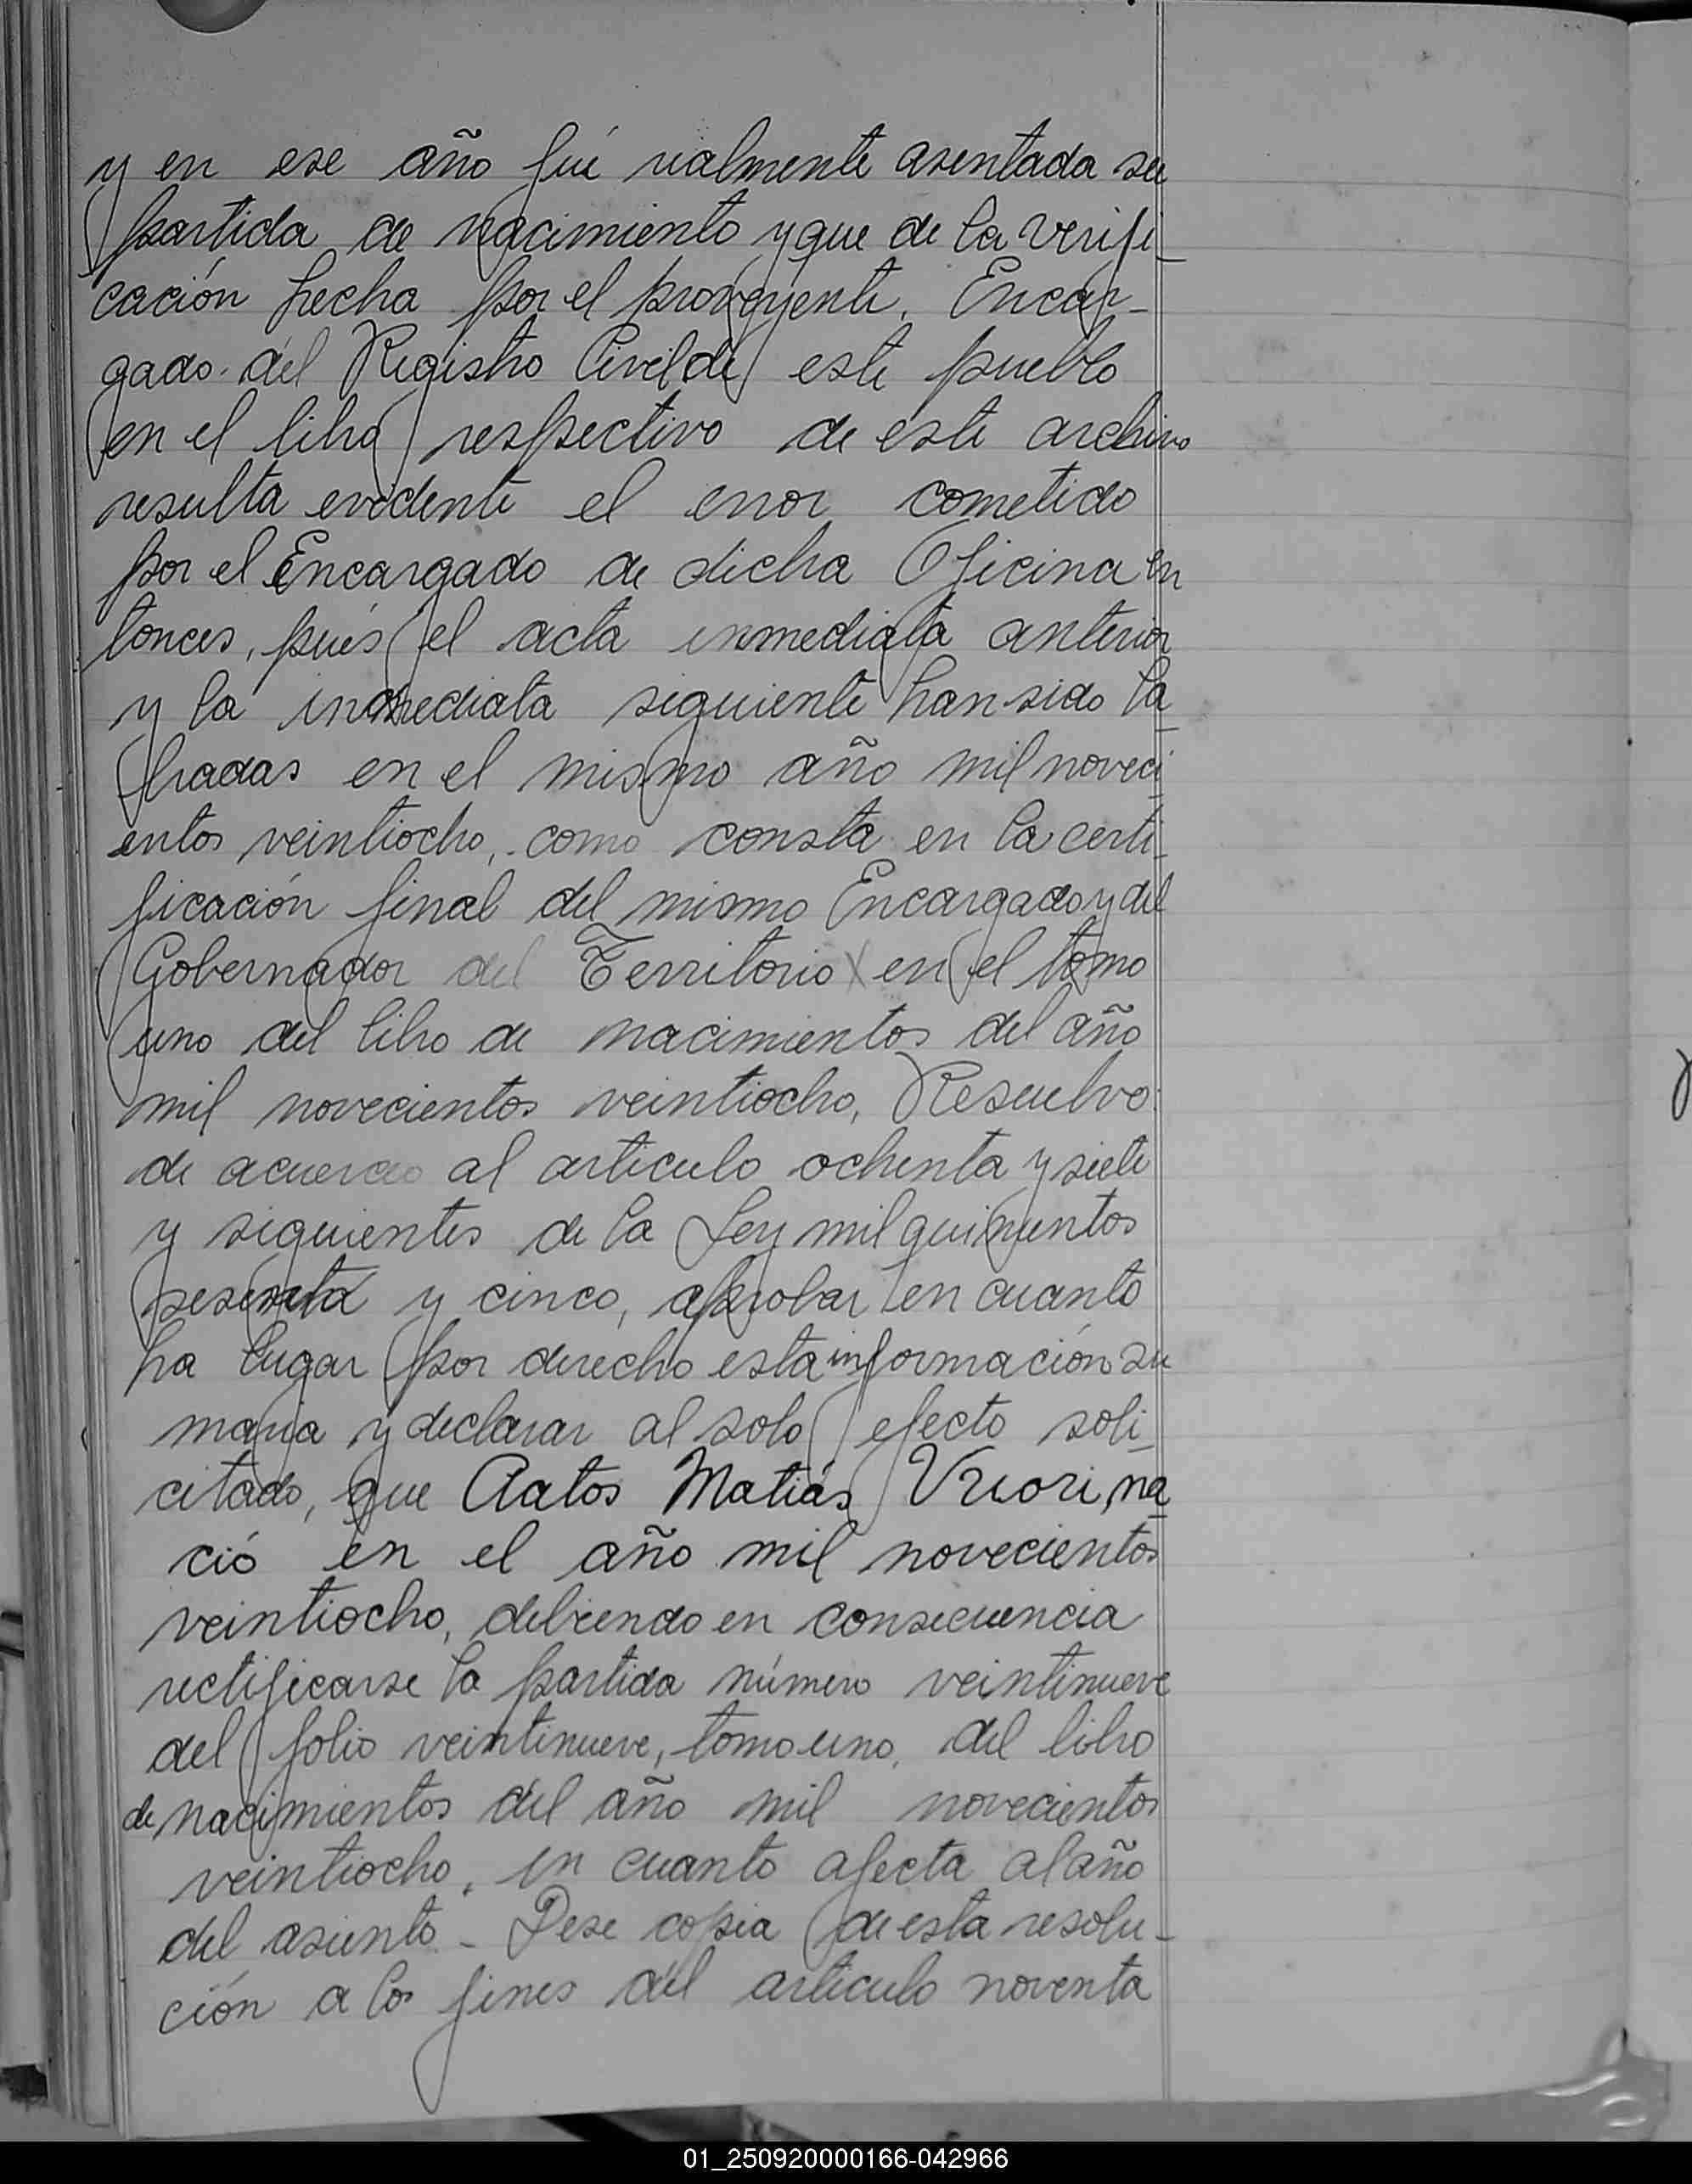 y en ese año fué realmente asentada su
partida de nacimiento y que de la verifi-
cación hecha por el proveyente, Encar-
gado del Registro Civil de este pueblo
en el libro respectivo de este archivo
resulta evidente el error cometido
por el Encargado de dicha Oficina en
tonces, pués el acta inmediata anterior
y la inmediata siguiente han sido la-
bradas en el mismo año mil noveci-
entos veintiocho, como consta en la certi-
ficación final del mismo Encargado y del
Gobernador del Territorio en el tomo
uno del libro de nacimientos del año
mil novecientos veintiocho, Resuelvo:
de acuerdo al articulo ochenta y siete
y siguientes de la Ley mil quinientos
sesenta y cinco, aprobar en cuanto
ha lugar por derecho esta información su
maria y declarar al solo efecto soli-
citado, que Aatos Matiás Vuori, na-
ció en el año mil novecientos
veintiocho, debiendo en consecuencia
rectificarse la partida número veintinueve
del folio veintinueve, tomo uno, del libro
de nacimientos del año mil novecientos
veintiocho, en cuanto afecta al año
del asiento - Dese copia de esta resolu-
ción a los fines del articulo noventa
01_250920000166-042966